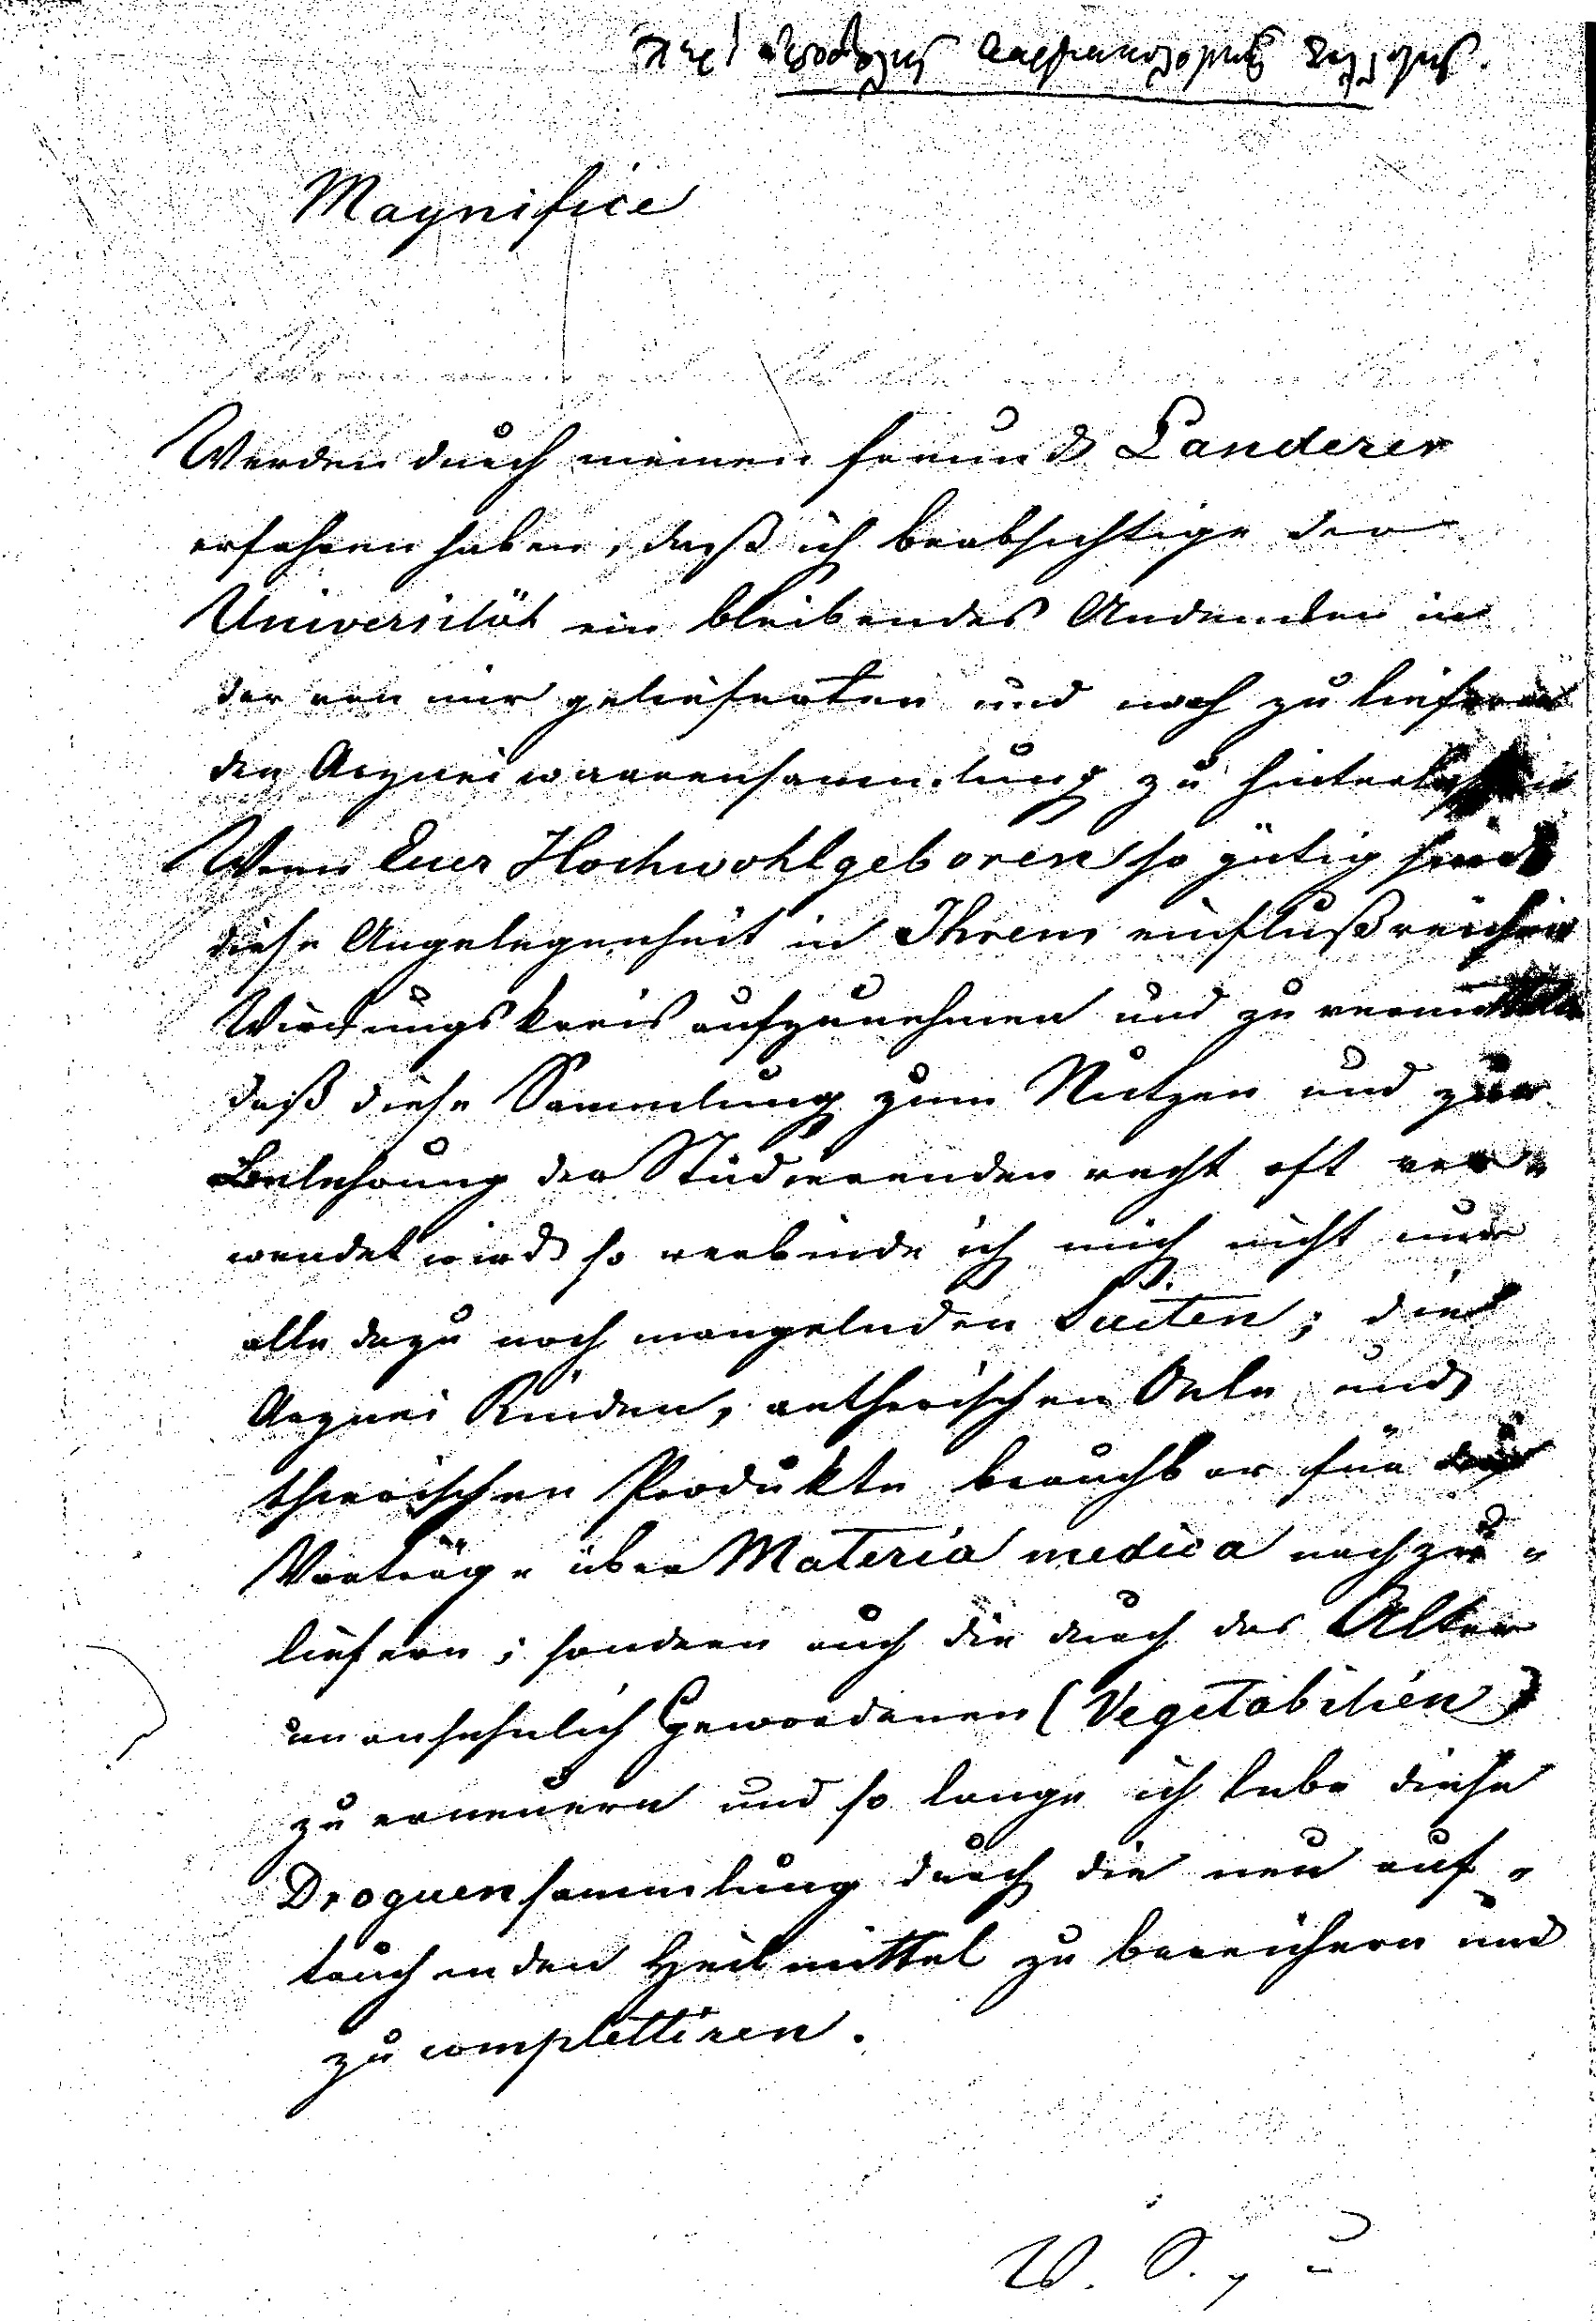 Περὶ ἀποστολῆς φαρμακολογικῆς συλλογῆς.
Magnifice
Werden durch meinen Freund Landerer
erfahren haben, daß ich beabsichtige der
Universität ein bleibendes Andenken in
der von mir gelieferten und noch zu liefern
den Arzneiwaarensammlung zu hinterlassen
Wenn Euer Hochwohlgeboren so gütig sind
diese Angelegenheit in Ihrem einflußreichen
Wirkungskreis aufzunehmen und zu vermitteln
daß diese Sammlung zum Nutzen und zur
Belehrung der Studierenden recht oft ver„
wendet wird so verbinde ich mich nicht nur
alle dazu noch mangelnden Suiten; die
Arznei Rinden, aetherischen Oele und
thierischen Produkte brauchbar für
Vorträge über Materia medica nachzu„
liefern; sondern auch die durch das Alter
unansehnlich Gewordenen (Vegetabilien)
zu erneuern und so lange ich lebe diese
Droguensammlung durch die neu auf„
tauchenden Heilmittel zu bereichern und
zu complettiren.